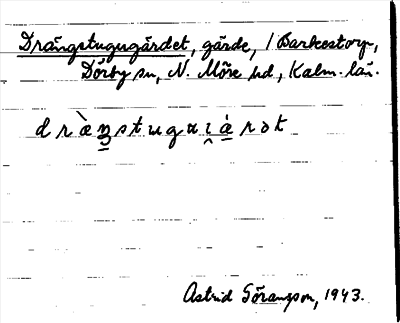 Drängstugugärdet, gärde, i Barkestorp,
Dörby sn, N. Möre hd, Kalm. län.
Astrid Göransson, 1943.